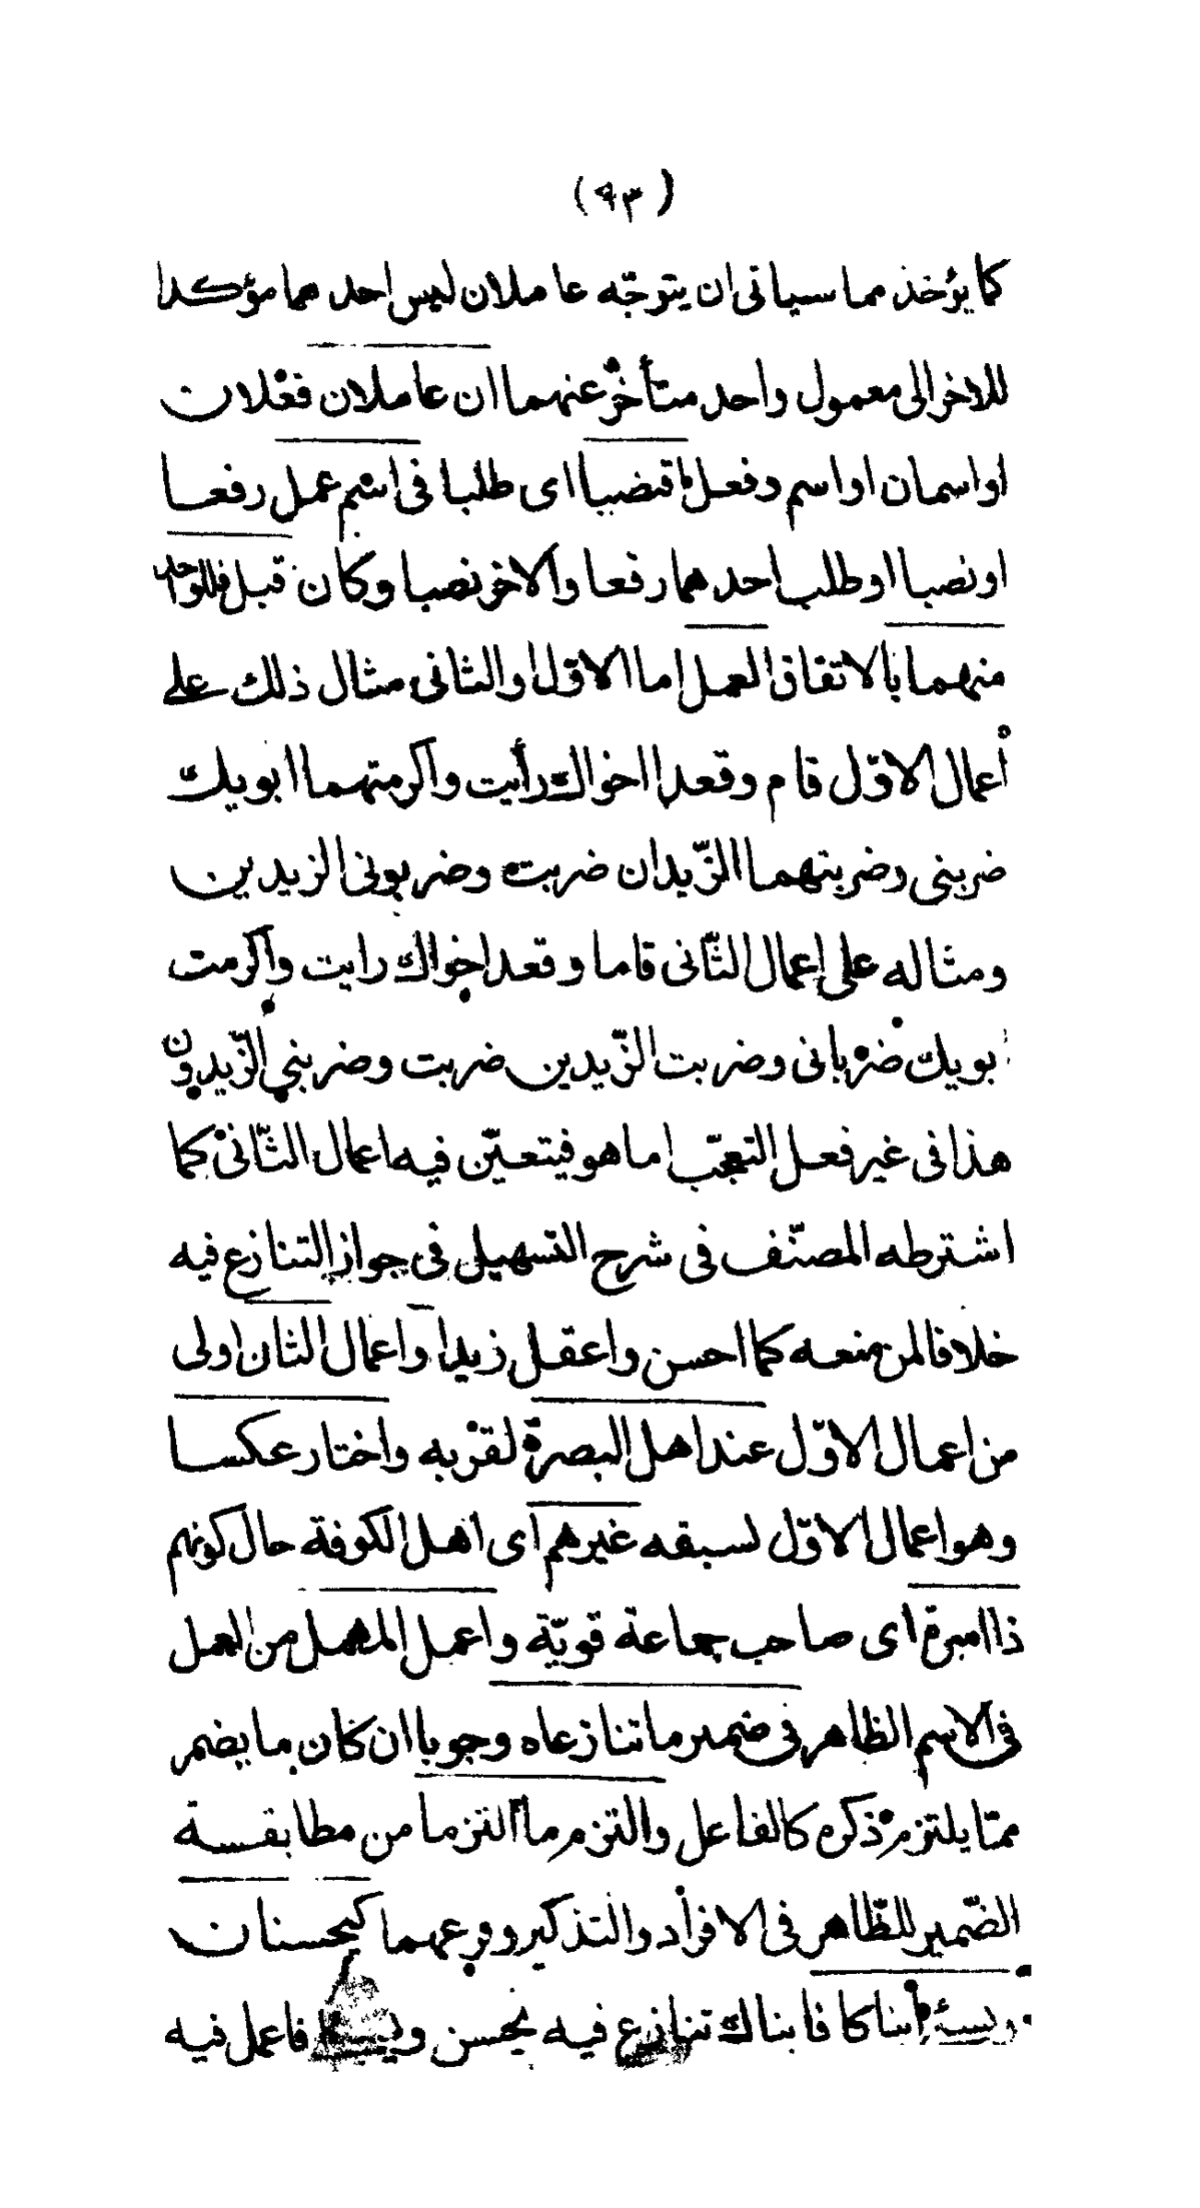 (٩٣)
كما يؤخذ مما سياتى ان يتوجّه عاملان ليس احدهما مؤكدا
للاخر الى معمول واحد متأخّر عنهما ان عاملان فعلان
او اسمان او اسم وفعل اقتضيا اى طلبا فى اسم عمل رفعا
او نصبا او طلب احدهما رفعا والاخر نصبا وكان قبل فللواحد
منهما بالاتفاق العمل اما الاوّل او الثانى مثال ذلك على
أعمال الاوّل قام وقعدا اخواك رأيت واكرمتهما ابويك
ضربنى وضربتهما الزّيدان ضربت وضربونى الزيدين
ومثاله على إعمال الثّانى قاما وقعد اخواك رايت واكرمت
ابويك ضربانى وضربت الزّيدين ضربت وضربنى الزّيدون
هذا فى غير فعل التعجّب اما هو فيتعيّن فيه اعمال الثّانى كما
اشترطه المصنّف فى شرح التسهيل فى جواز التنازع فيه
خلافا لمن منعه كما احسن واعقل زيدا واعمال الثان اولى
من اعمال الاوّل عند اهل البصرة لقربه واختار عكسا
وهو اعمال الاوّل لسبقه غيرهم اى اهل الكوفة حال كونهم
ذا اسرة اى صاحب جماعة قويّة واعمل المهمل من العمل
فى الاسم الظاهر فى ضمير ما تنازعاه وجوبا ان كان ما يضمر
ممّا يلتزم ذكره كالفاعل والتزم ما التزما من مطابقة
الضّمير للظّاهر فى الافراد والتذكير وفرعهما كيحسنان
ويسئ ابناكا فابناك تنازع فيه يحسن ويسئ فاعمل فيه